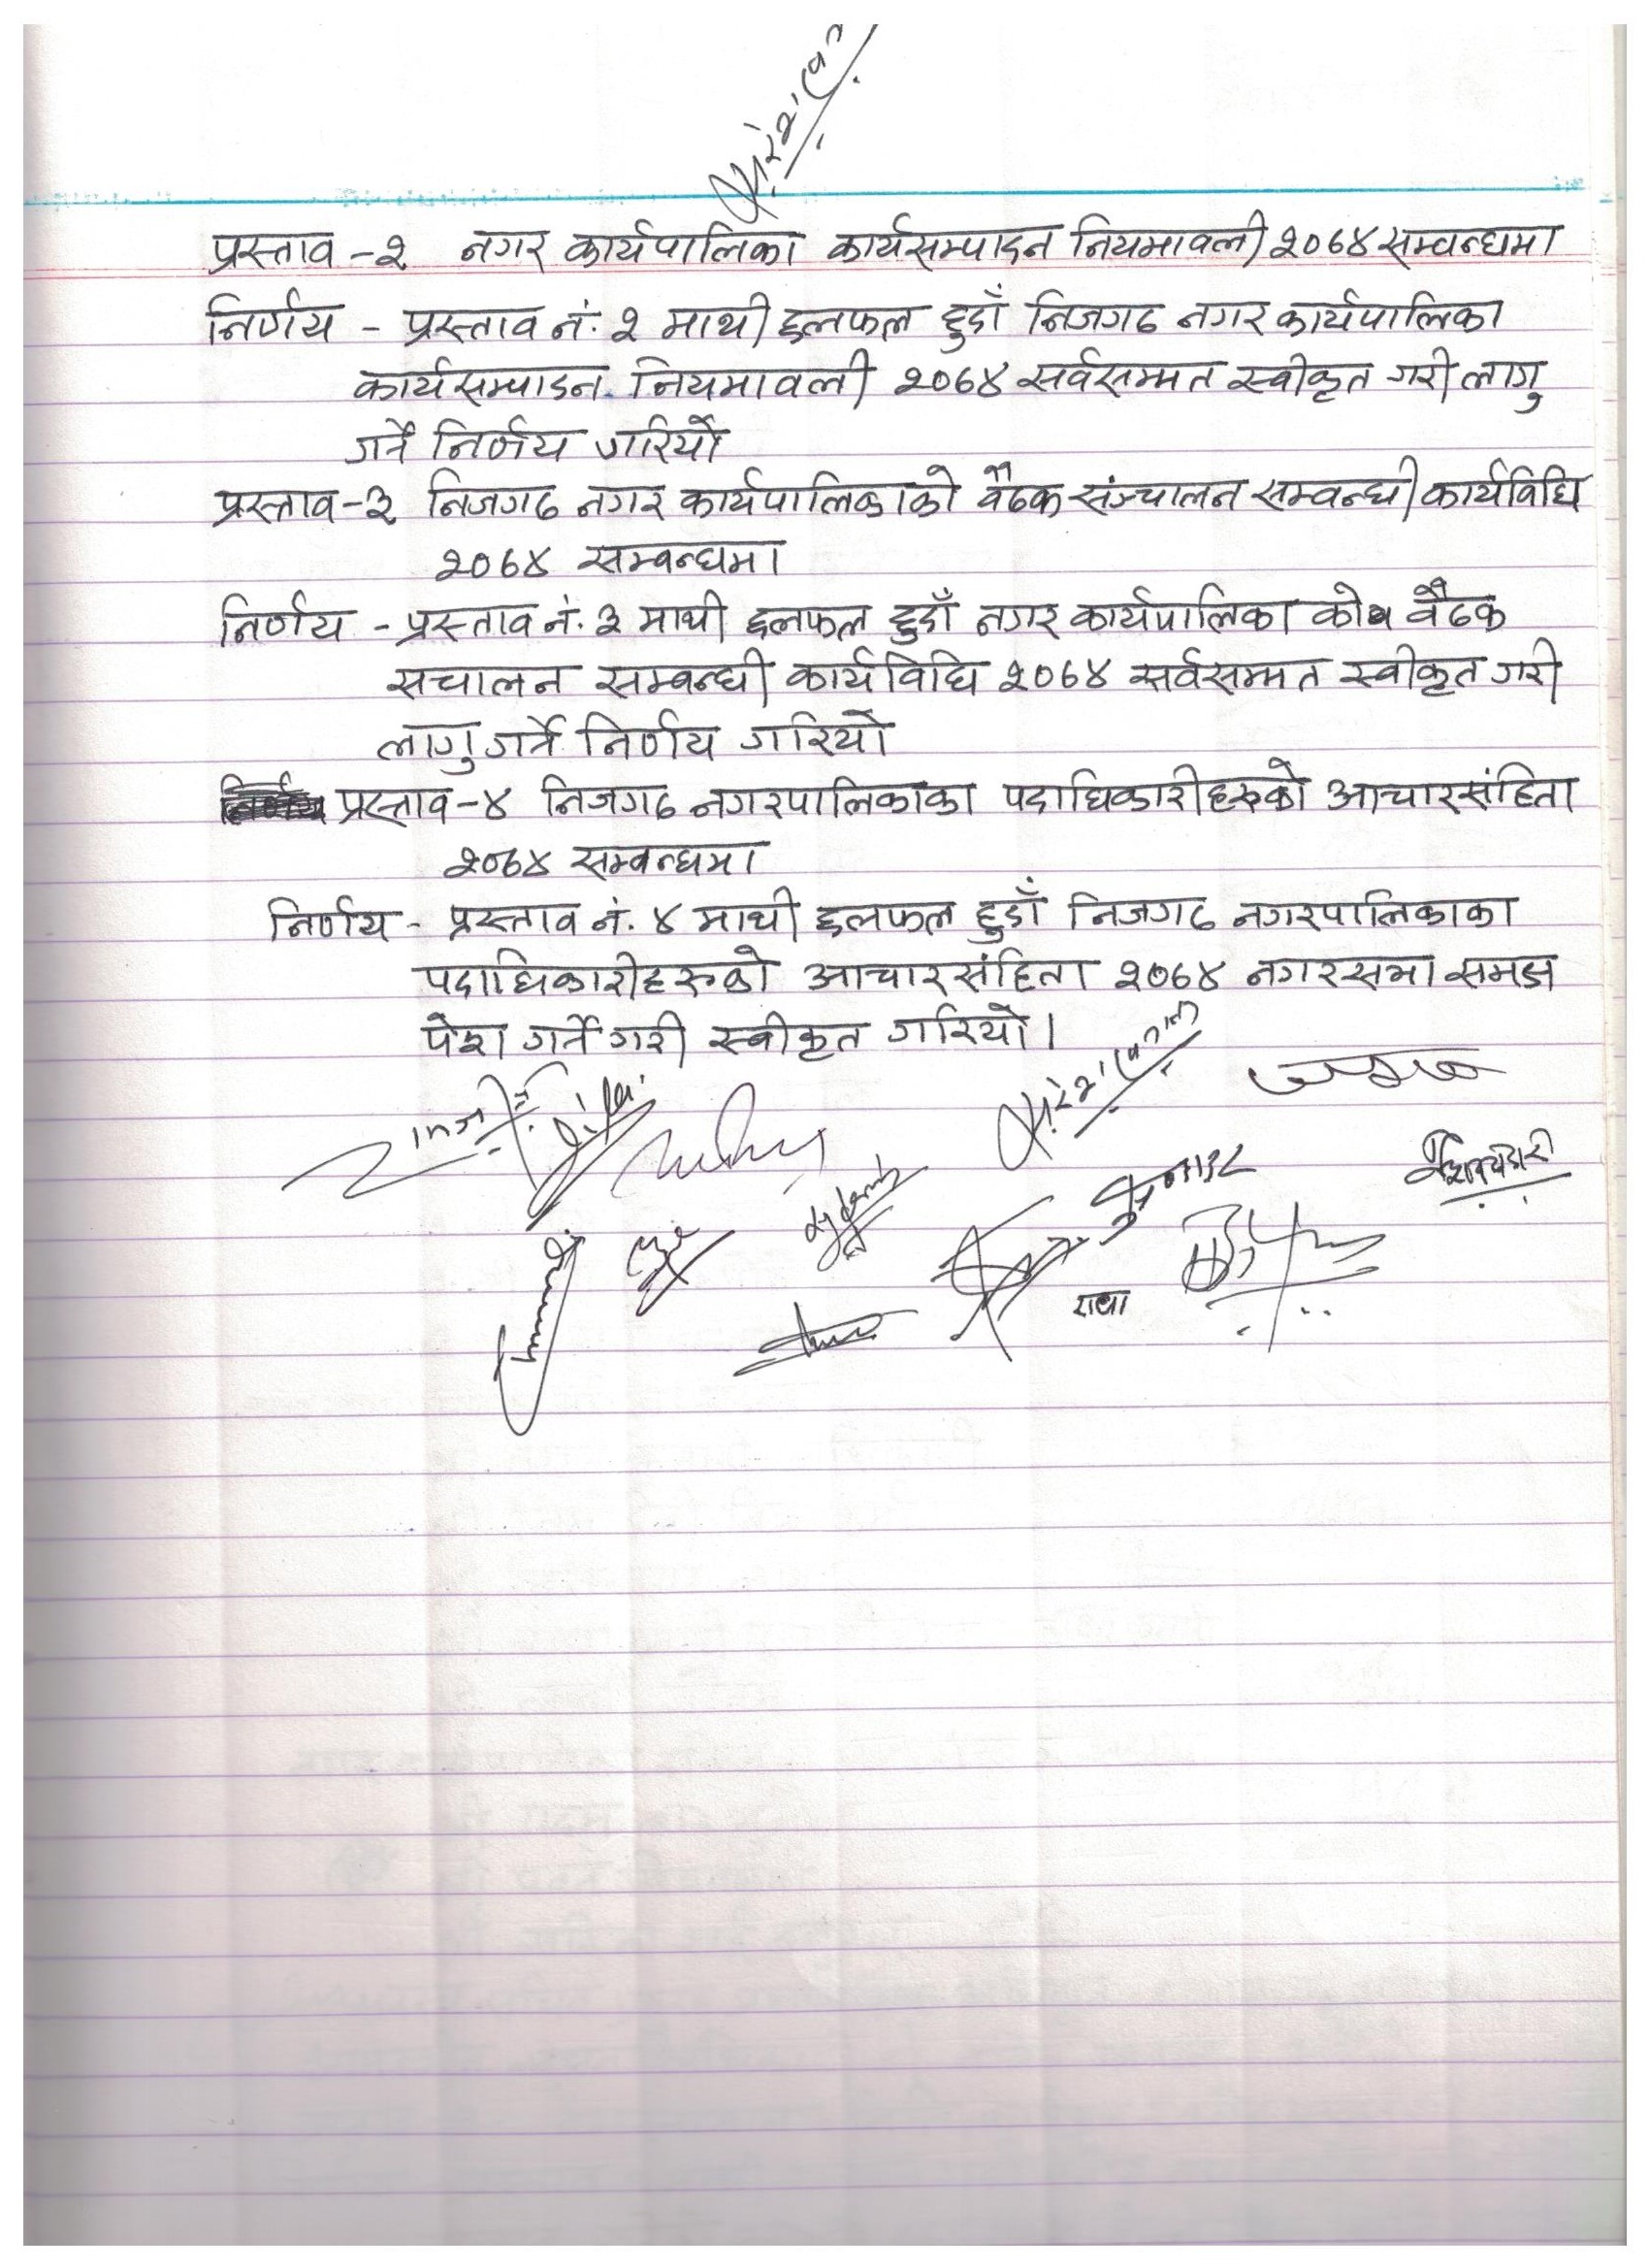 प्रस्ताव -२ नगर कार्यपालिका कार्यसम्पादन नियमावली २०७४ सम्वन्धमा
निर्णय - प्रस्ताव नं. २ माथी छलफल हुदाँ निजगढ नगर कार्यपालिका
कार्यसम्पादन नियमावली २०७४ सर्वसम्मत स्वीकृत गरी लागु
गर्ने निर्णय गरियो
प्रस्ताव-३ निजगढ नगर कार्यपालिकाको वैठक संञ्चालन सम्वन्धी कार्यविधि
२०७४ सम्वन्धमा
निर्णय - प्रस्ताव नं. ३ माथी छलफल हुदाँ नगर कार्यपालिका को वैठक
सचालन सम्वन्धी कार्यविधि २०७४ सर्वसम्मत स्वीकृत गरी
लागु गर्ने निर्णय गरियो
प्रस्ताव-४ निजगढ नगरपालिकाका पदाधिकारीहरुको आचारसंहिता
२०७४ सम्वन्धमा
निर्णय - प्रस्ताव नं. ४ माथी छलफल हुदाँ निजगढ नगरपालिकाका
पदाधिकारीहरुको आचारसंहिता २०७४ नगरसभा समक्ष
पेश गर्ने गरी स्वीकृत गरियो।
राधा